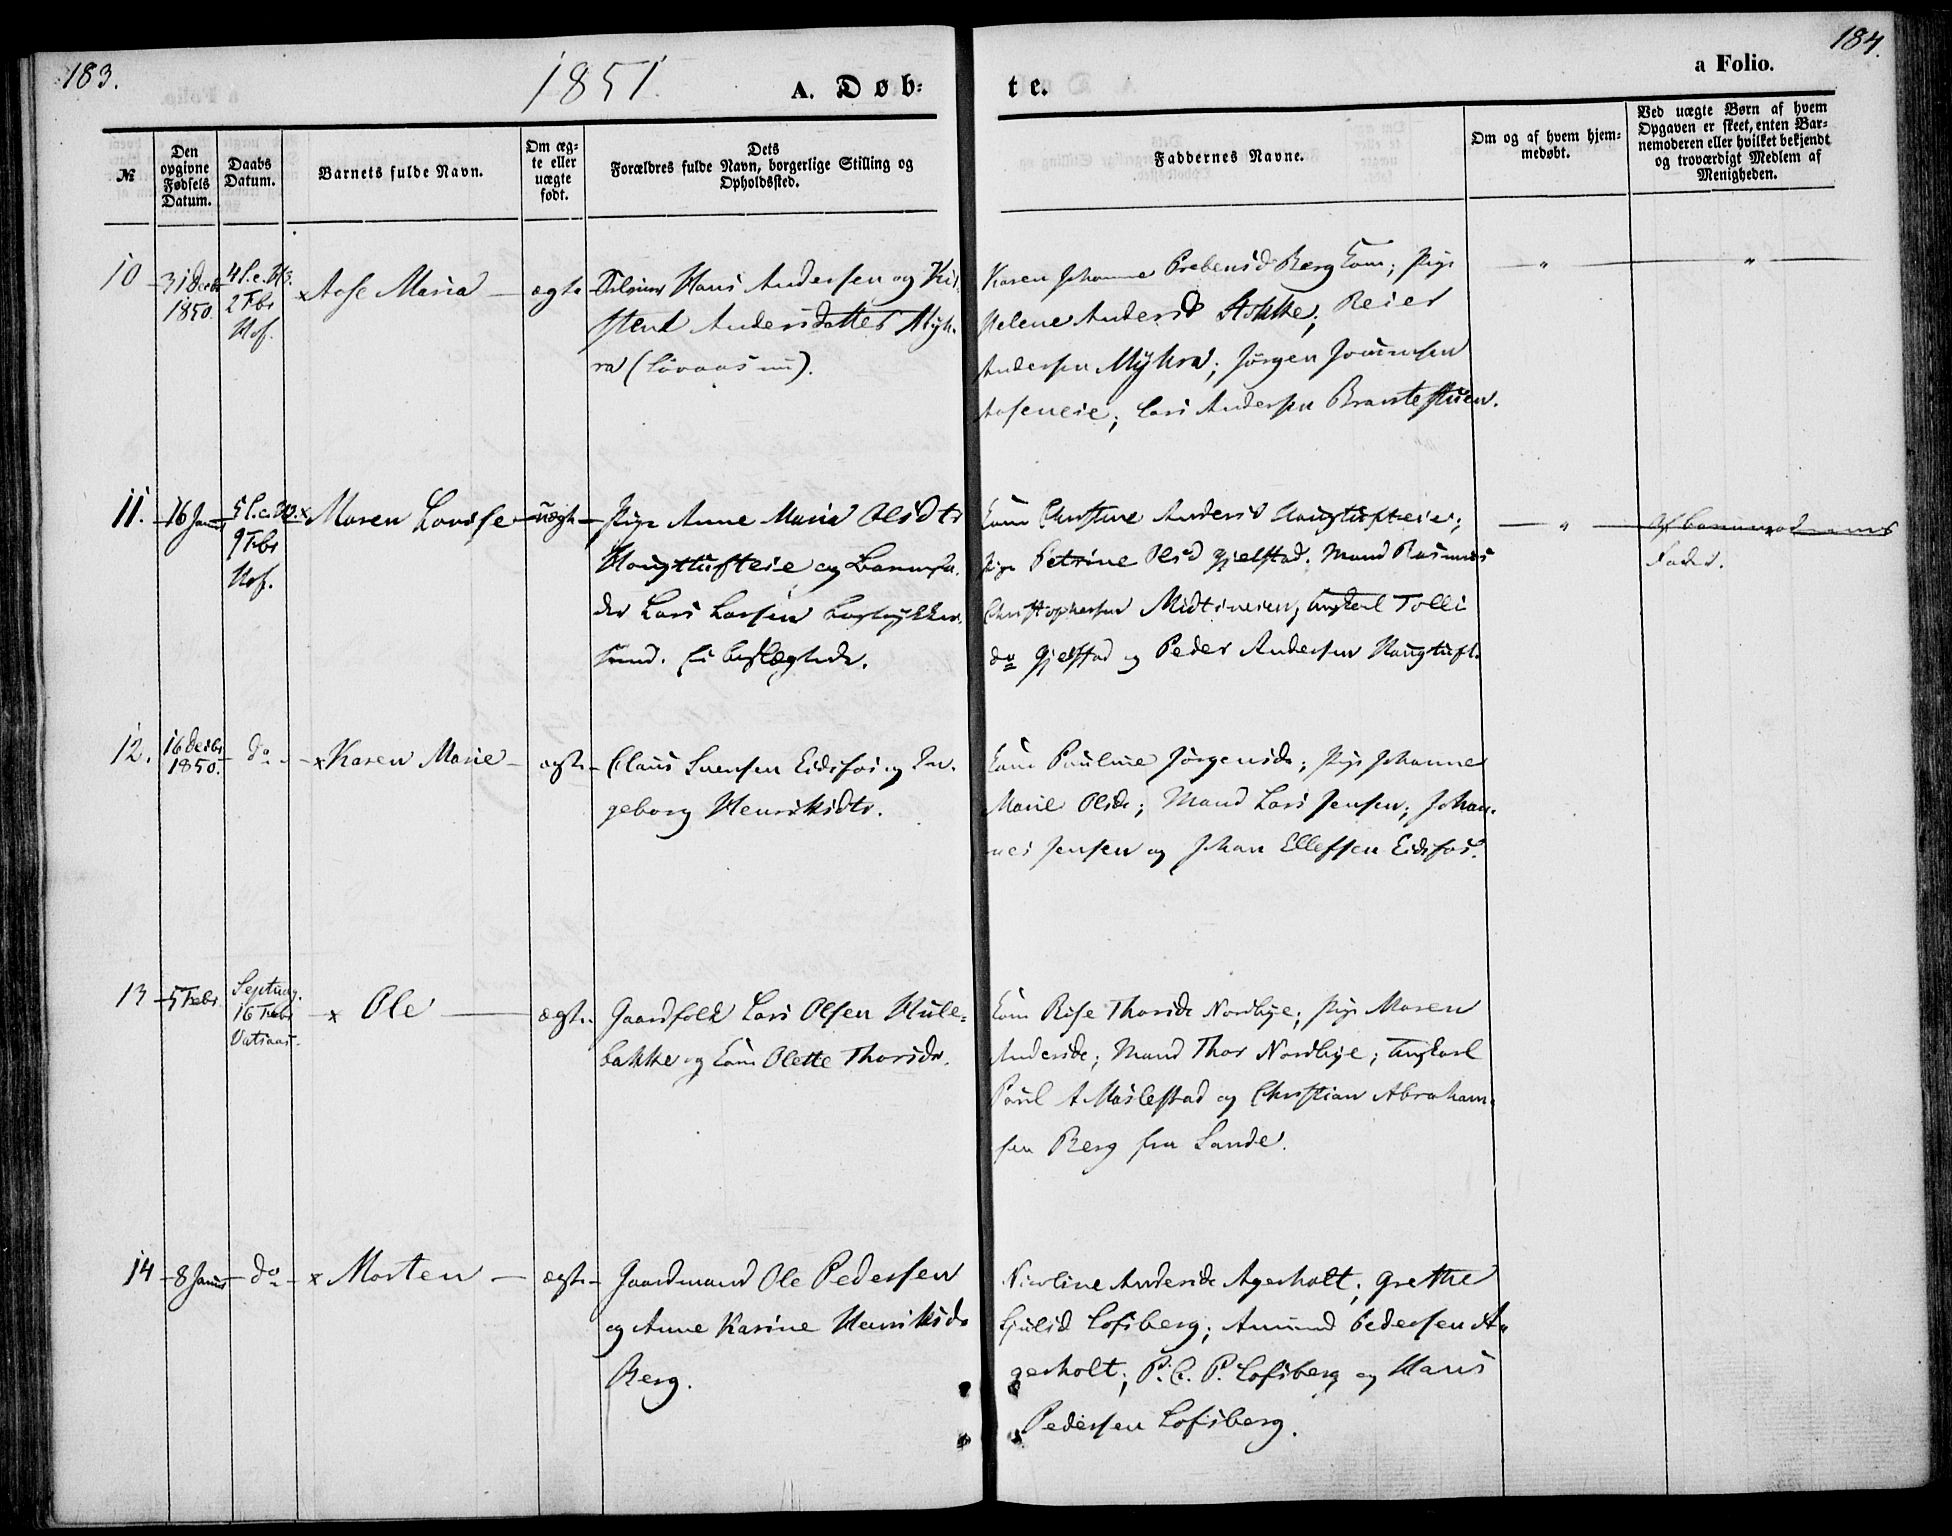 183.
1851.
A. Døb-
te.
a Folio.
184.
№
Den opgivne Fødsels Datum.
Daabs Datum.
Barnets fulde Navn.
Om ægte eller uægte født.
Dets Forældres fulde Navn, borgerlige Stilling og Opholdssted.
Faddernes Navne.
Om og af hvem hjemmedøbt.
Ved uægte Børn af hvem Opgaven er skeet, enten Barnemoderen eller hvilket bekjendt og troværdigt Medlem af Menigheden.
10
31 Decbr 1850.
4 S. e. H3K.
2 Fbr
Hof.
x Aase Maria
ægte
Hans Andersen og Kir-
stine Andersdatter Myh-
ra (Løvaas nu).
Karen Johanne Prebensd Berg Kone; Pige
Helene Andersd Stokke; Reier
Andersen Myhra; Jørgen
Aaseneie; Lars Andersen
"
"
11.
16 Janr
5 S. e. H3K.
9 Fbr
Hof.
x Maren Lovise
uægte
Pige Anne Maria Olsdtr
Haugtufteie og Barnefa-
der Lars Larsen
Ei beslægtede.
Kone Christine Andersd Haugtufteie;
Pige Petrine Olsd Gjelstad. Mand Rasmus
Christophersen Ungkarl Tolle
do Gjelstad og Peder Andersen Haugtuft.
"
Af Barnemoderens
Fader.
12.
16 Decbr 1850.
do
x Karen Marie
ægte
Claus Svensen Eidsfos og In-
geborg Henriksdtr.
Kone Pauline Jørgensdr; Pige Johanne
Marie Olsdr; Mand Lars Jensen; Johan-
nes Jensen og Johan Ellefsen Eidsfos.
13
5 Febr.
Septuag.
16 Febr
Vatsaas.
x Ole
ægte
Gaardfolk Lars Olsen Hule-
bakke og Kone Olette Thorsdr.
Kone Rise Thorsdr Nordbye; Pige Maren
Andersdr; Mand Thor Nordbye; Ungkarl
Paul A Maslestad og Christian Abraham-
sen Berg fra Sande.
14
8 Janr
do
x Morten
ægte
Gaardmand Ole Pedersen
og Anne Karine Henriksdr
Berg.
Nicoline Andersdr Agerholt; Grethe
Lofsberg; Amund Pedersen A-
gerholt; P. C. P. Lofsberg og Hans
Pedersen Lofsberg.